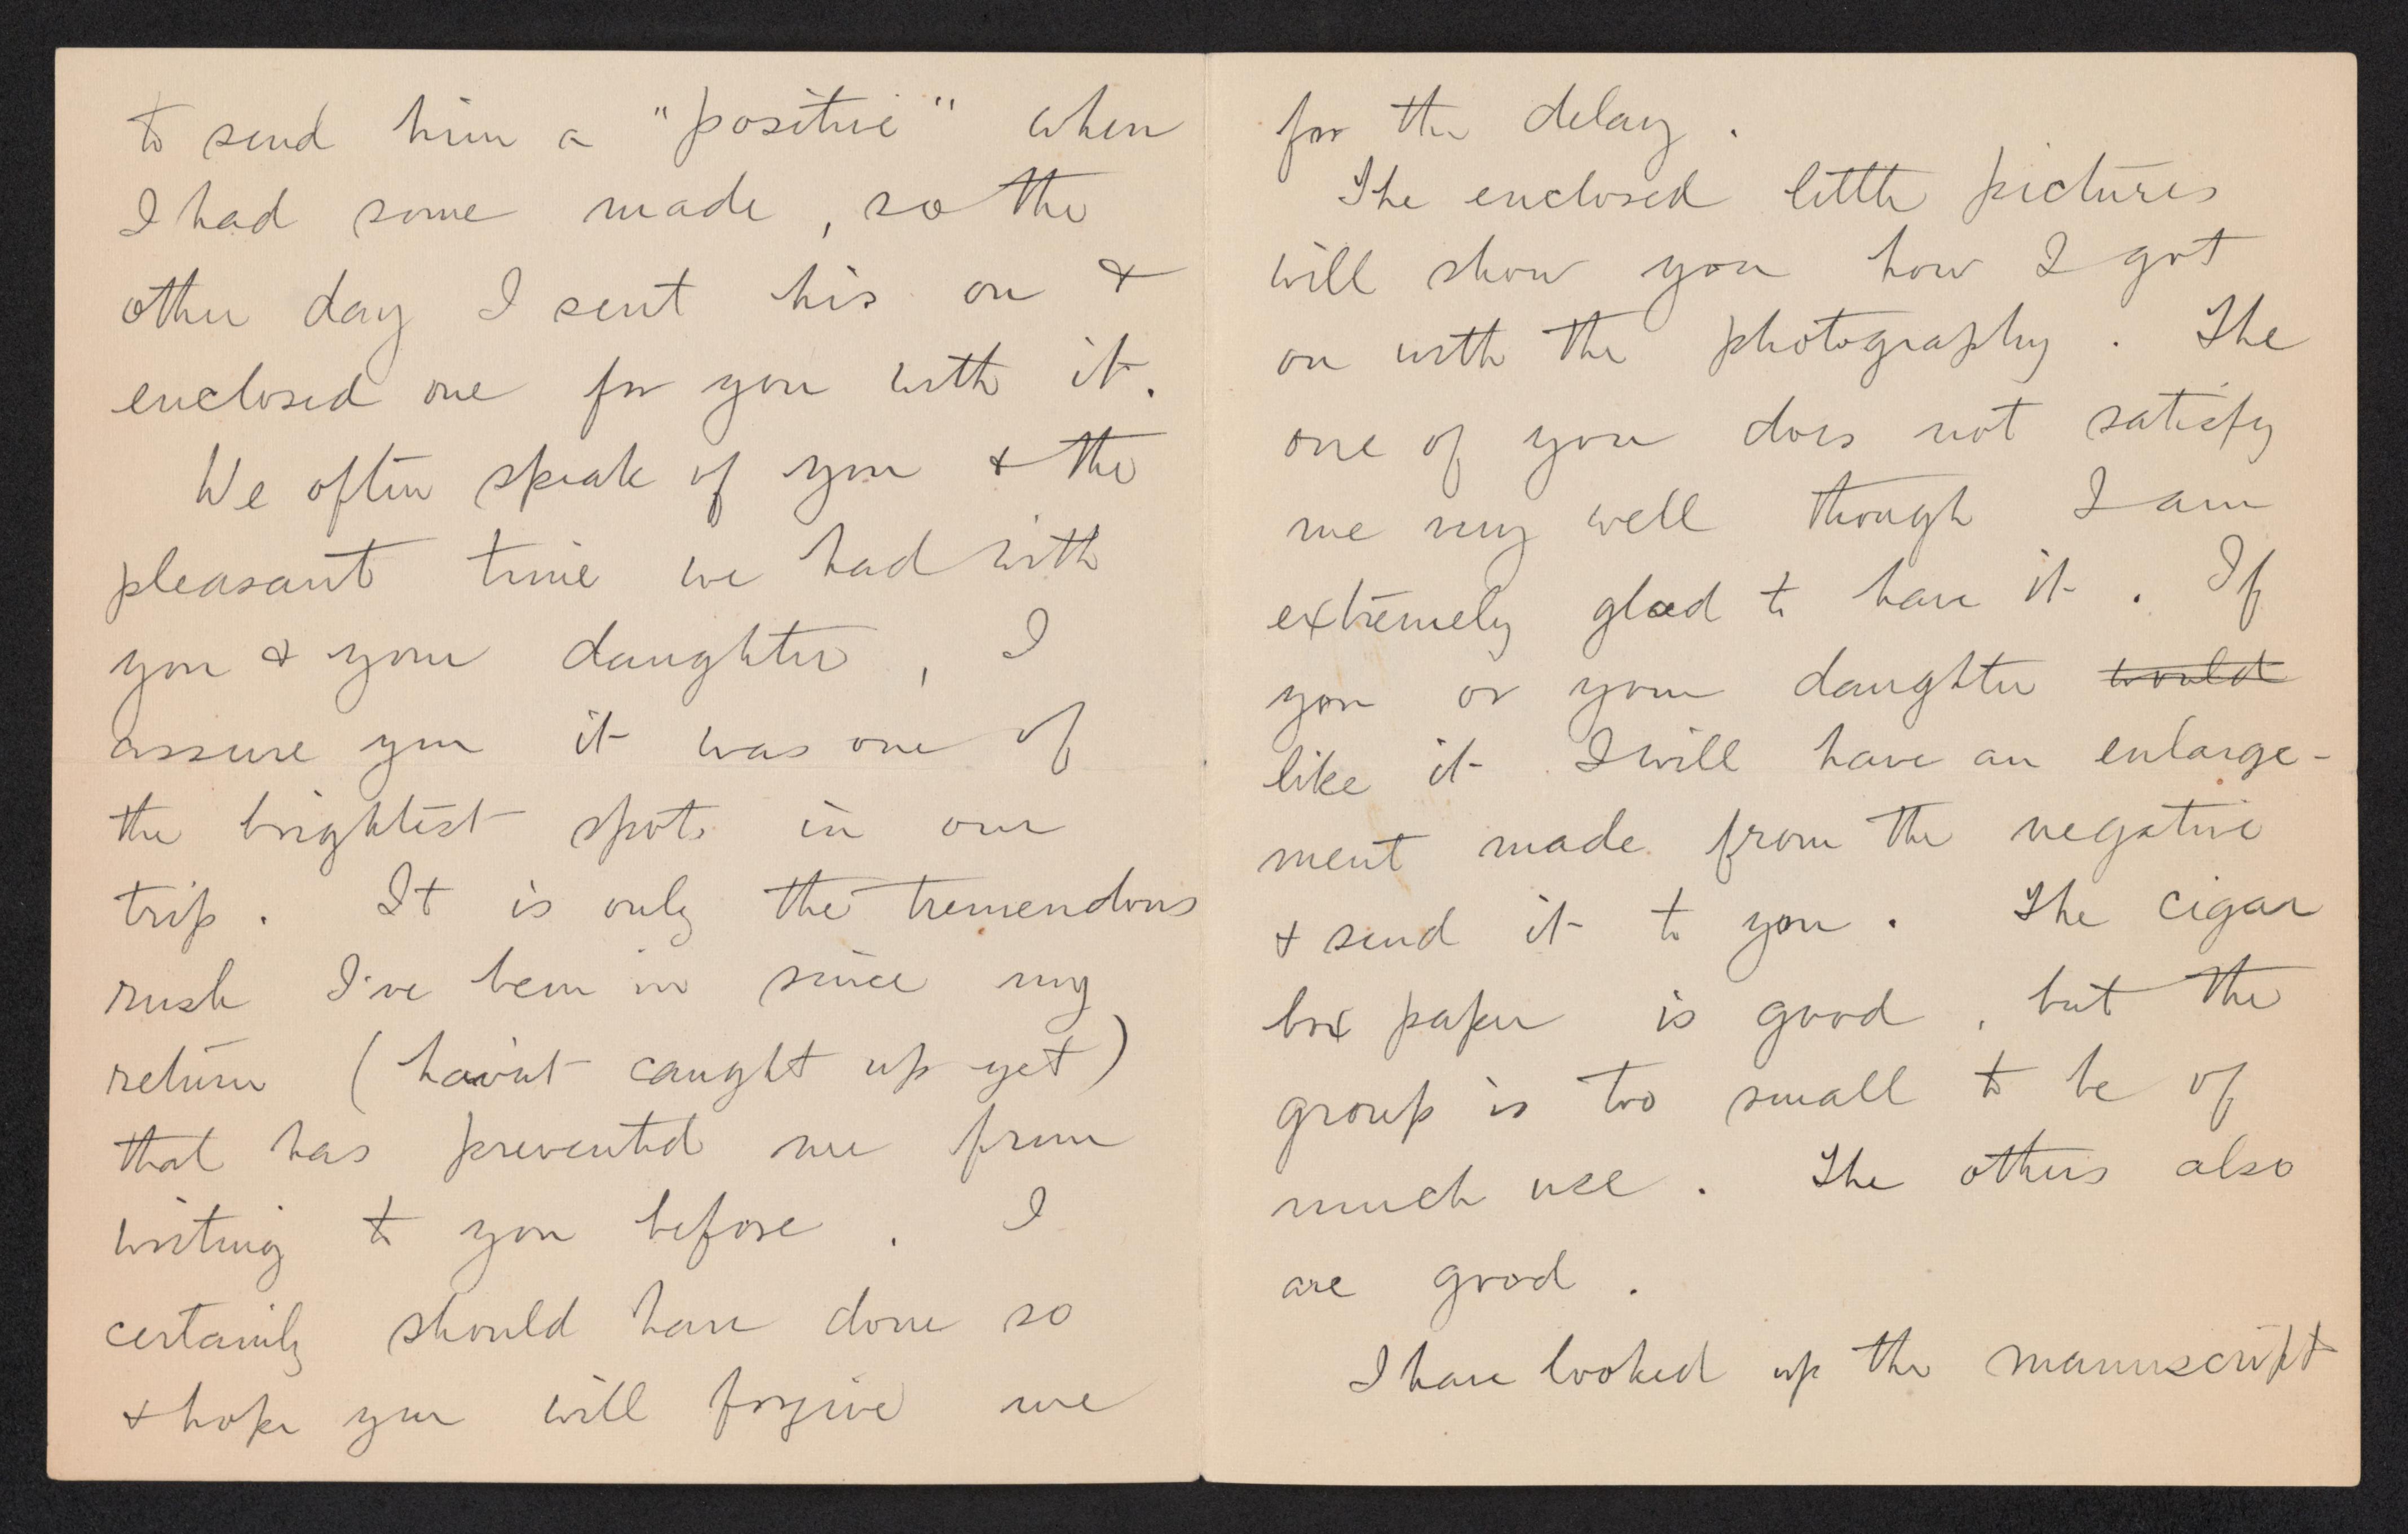 to send him a "positive" when
I had some made, so the
other day I sent his on &
enclosed one for you with it.
We often speak of you & the
pleasant time we had with
you & your daughter, I
assure you it was one of
the brightest spots in our
trip. It is only the tremendous
rush I've been in since my
return (hav'nt caught up yet)
that has prevented me from
writing to you before. I
certainly should have done so
& hope you will forgive me
for the delay.
The enclosed little pictures
will show you how I got
on with the photography. The
one of you does not satisfy
me very well though I am
extremely glad to have it. If
you or your daughter would
like it I will have an enlarge-
ment made from the negative
& send it to you. The cigar
box paper is good, but the
group is too small to be of
much use. The others also
are good.
I have looked up the manuscript